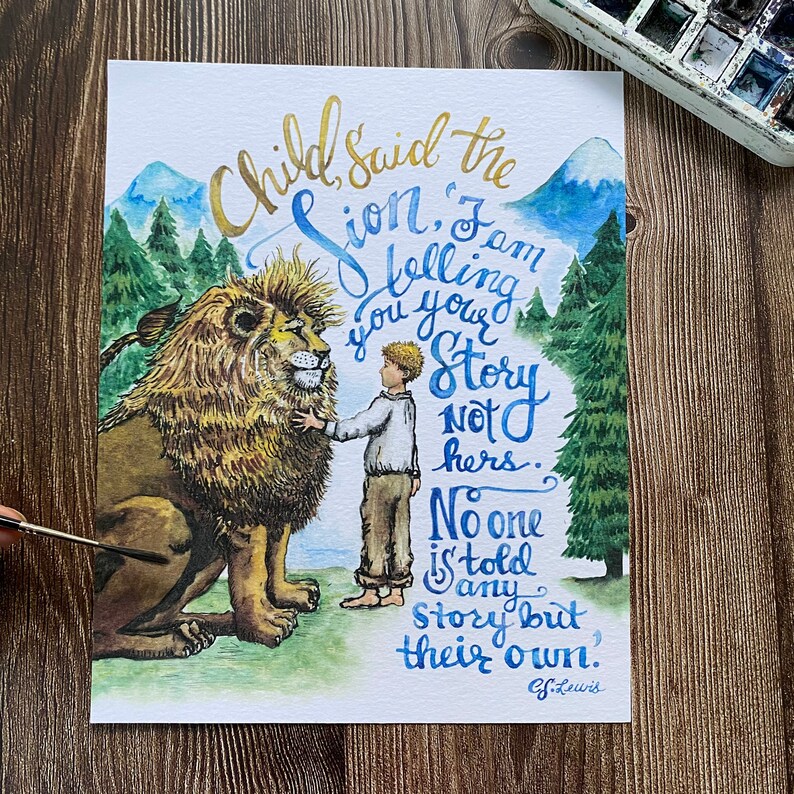 Child, Said the
Lion, 'I am
telling
you your
Story
Not
hers.
No one
is told
any
story but
their own.'
C.S. Lewis